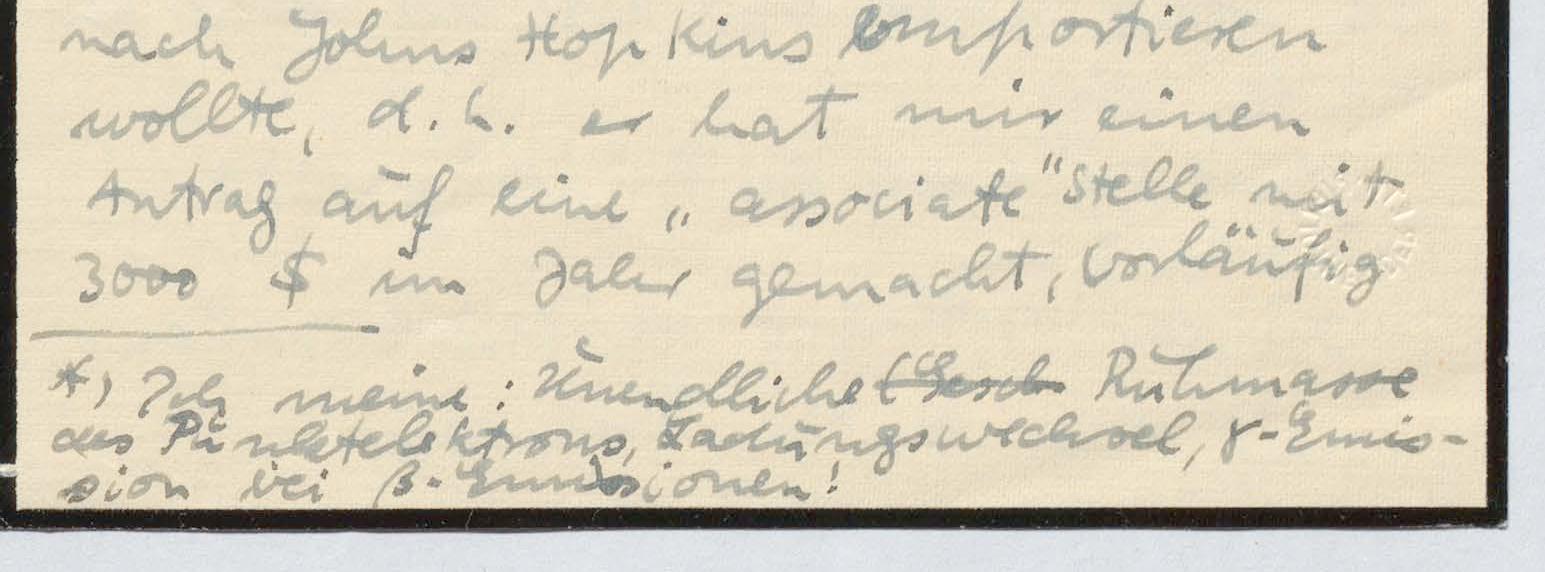 nach Johns Hopkins emportieren
wollte, d.h. er hat mir einen
Antrag auf eine „associate" Stelle mit
3000 $ im Jahr gemacht, vorläufig
*) Ich meine: Unendliche (Gesch Ruhmasse
des Punktelektrons, Ladungswechsel, γ-Emis-
sion bei β-Emissionen!